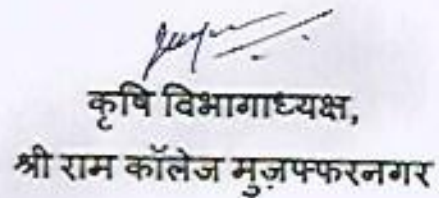 कृषि विभागाध्यक्ष,
श्री राम कॉलेज मुज़फ्फरनगर